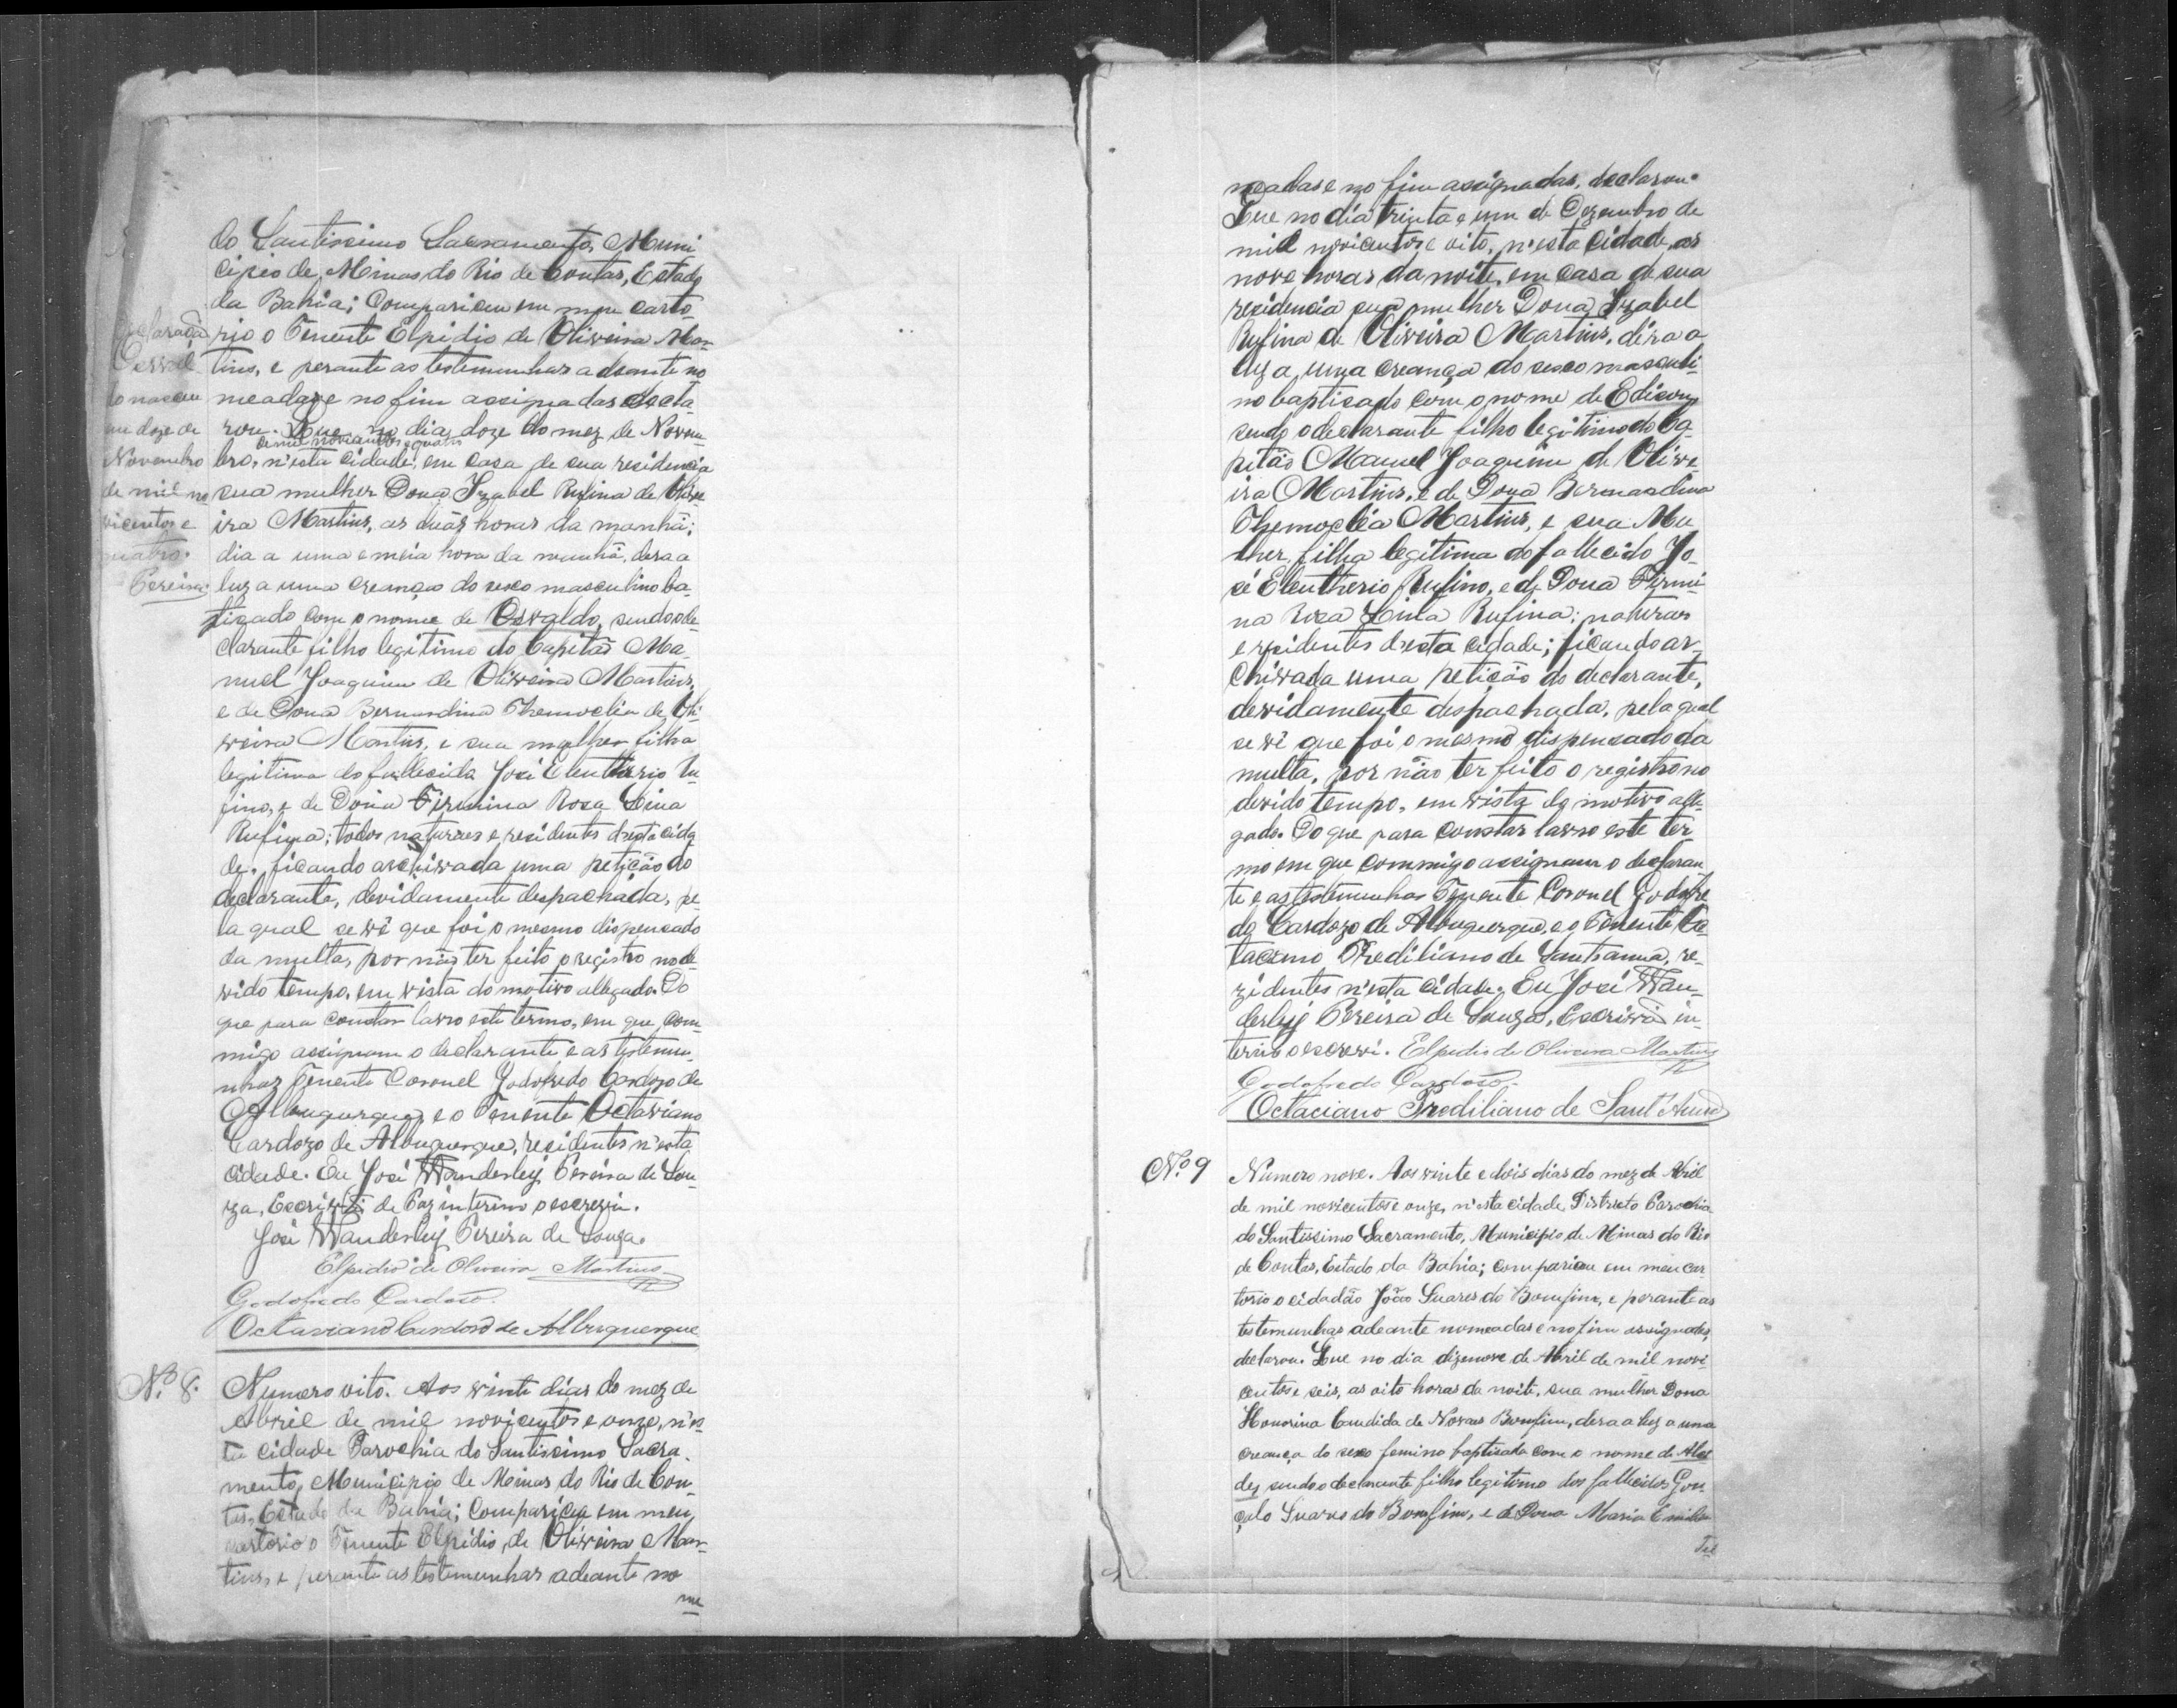 do Santissimo Sacramento, Muni
cipio de Minas do Rio de Contas, Estado
da Bahia; Compariceu em meu carto-
rio o Tenente Elpidio de Oliveira Mar-
tins, e perante as testemunhas adeante no-
meadas e no fim assignadas decla-
rou. Que no dia doze do mez de Novem-
de mil novicentos e quatro
bro, n'esta cidade, em casa de sua residencia
sua mulher Dona Izabel Rufina de Olive-
ira Martins, as duas horas da manhã;
dia a uma e meia hora da manhã, dera a
luz a uma creança do sexo masculino ba-
tizado com o nome de Osvaldo, sendo o de-
clarante filho legitimo do Capitão Ma-
nuel Joaquim de Oliveira Martins,
e de Dona Bernardina Themoclia de Oli-
veira Martins, e sua mulher filha
legitima do fallecido José Eleutherio Ru-
fino, e de Dona Firmina Rosa Lina
Rufina; todos naturaes e residentes d'esta cida
de, ficando archivada uma petição do
declarante, devidamente despachada, pe-
la qual se vê que foi o mesmo dispensado
da multa, por não ter feito o registro no de-
vido tempo, em vista do motivo allegado. Do
que para constar lavro este termo, em que com-
migo assignam o declarante e as testemu-
nhas Tenente Coronel Godofredo Cardozo de
Albuquerque, e o Tenente Octaviano
Cardozo de Albuquerque, residentes n'esta
cidade. Eu José Wanderley Pereira de Sou-
za, Escrivão de Paz interino o escrevi.
José Wanderley Pereira de Souza.
Elpidio de Oliveira Martins
Godofredo Cardoso.
Octaviano Cardoso de Albuquerque
Declaração
Novembro
de mil no
vicentos e
quatro.
Pereira
Nº 8.
Numero oito. Aos vinte dias do mez de
Abril de mil novicentos e onze, n'es-
ta cidade Parochia do Santissimo Sacra-
mento, Municipio de Minas do Rio de Con-
tas, Estado da Bahia; Compariceu em meu
cartorio o Tenente Elpidio de Oliveira Mar-
tins, e perante as testemunhas adeante no-
me
meadas e no fim assignadas, declarou.
Que no dia trinta e um de Dezembro de
mil novicentos e oito, n'esta cidade, as
nove horas da noite, em casa de sua
residencia sua mulher Dona Izabel
Rufina de Oliveira Martins, déra a
luz a uma creança do sexo masculi-
no baptisado com o nome de Edison,
sendo o declarante filho legitimo do Ca-
pitão Manuel Joaquim de Olive-
ira Martins, e de Dona Bernardina
Themoclia Martins, e sua Mu
lher, filha legitima do fallecido Jo-
sé Eleutherio Rufino, e de Dona Firmi-
na Rosa Lina Rufina; naturaes
e residentes d'esta cidade; ficando ar-
chivada uma petição do declarante,
devidamente despachada, pela qual
se vê que foi o mesmo dispensado da
multa, por não ter feito o registro no
devido tempo, em vista do motivo alle-
gado. Do que para constar lavro este ter
mo em que commigo assignam o declaran
te e as testemunhas Tenente Coronel Godofre
do Cardozo de Albuquerque, e o Tenente Oc-
taciano Prediliano de Sant'anna, re-
zidentes n'esta cidade. Eu José Wan-
derley Pereira de Souza, Escrivão in-
terino o escrevi. Elpidio de Oliveira Martins
Godofredo Cardoso.
Octaciano Prediliano de Sant'Anna
Nº 9
Numero nove. Aos vinte e dois dias do mez de Abril
de mil novicentos e onze, n'esta cidade, Districto Parochia
do Santissimo Sacramento, Municipio de Minas do Rio
de Contas, Estado da Bahia; compariceu em meu car-
torio o cidadão João Suares do Bomfim, e perante as
testemunhas adeante nomeadas e no fim assignadas,
declarou. Que no dia dizenove de Abril de mil novi-
centos e seis, as oito horas da noite, sua mulher Dona
Honorina Candida de Novaes Bomfim, dera a luz a uma
creança do sexo femino baptisada com o nome de Alci
des, sendo o declarante filho legitimo dos fallecidos Gon
çalo Suares do Bomfim, e de Dona Maria Emilia